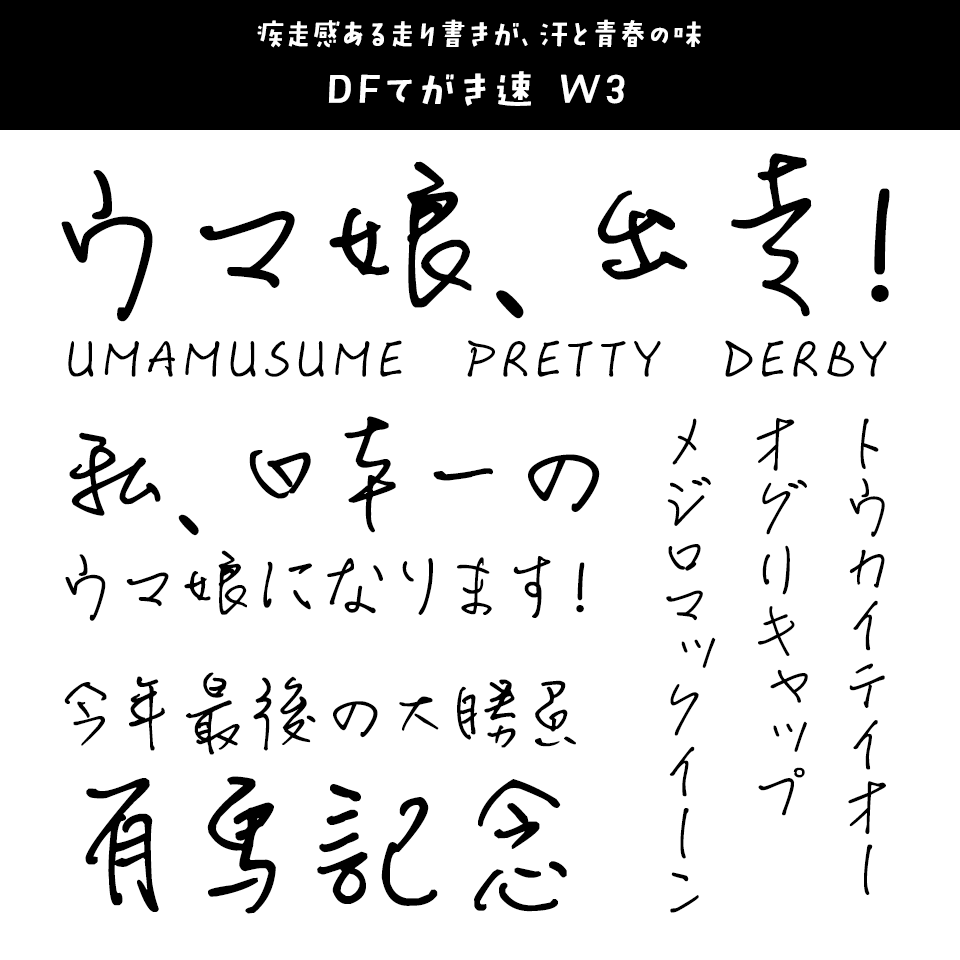 疾走感ある走り書きが、汗と青春の味
DFてがき速 W3
ウマ娘、出走!
UMAMUSUME PRETTY DERBY
私、日本一の
ウマ娘になります!
今年最後の大勝負
有馬記念
トウカイテイオー
オグリキャップ
メジロマックイーン